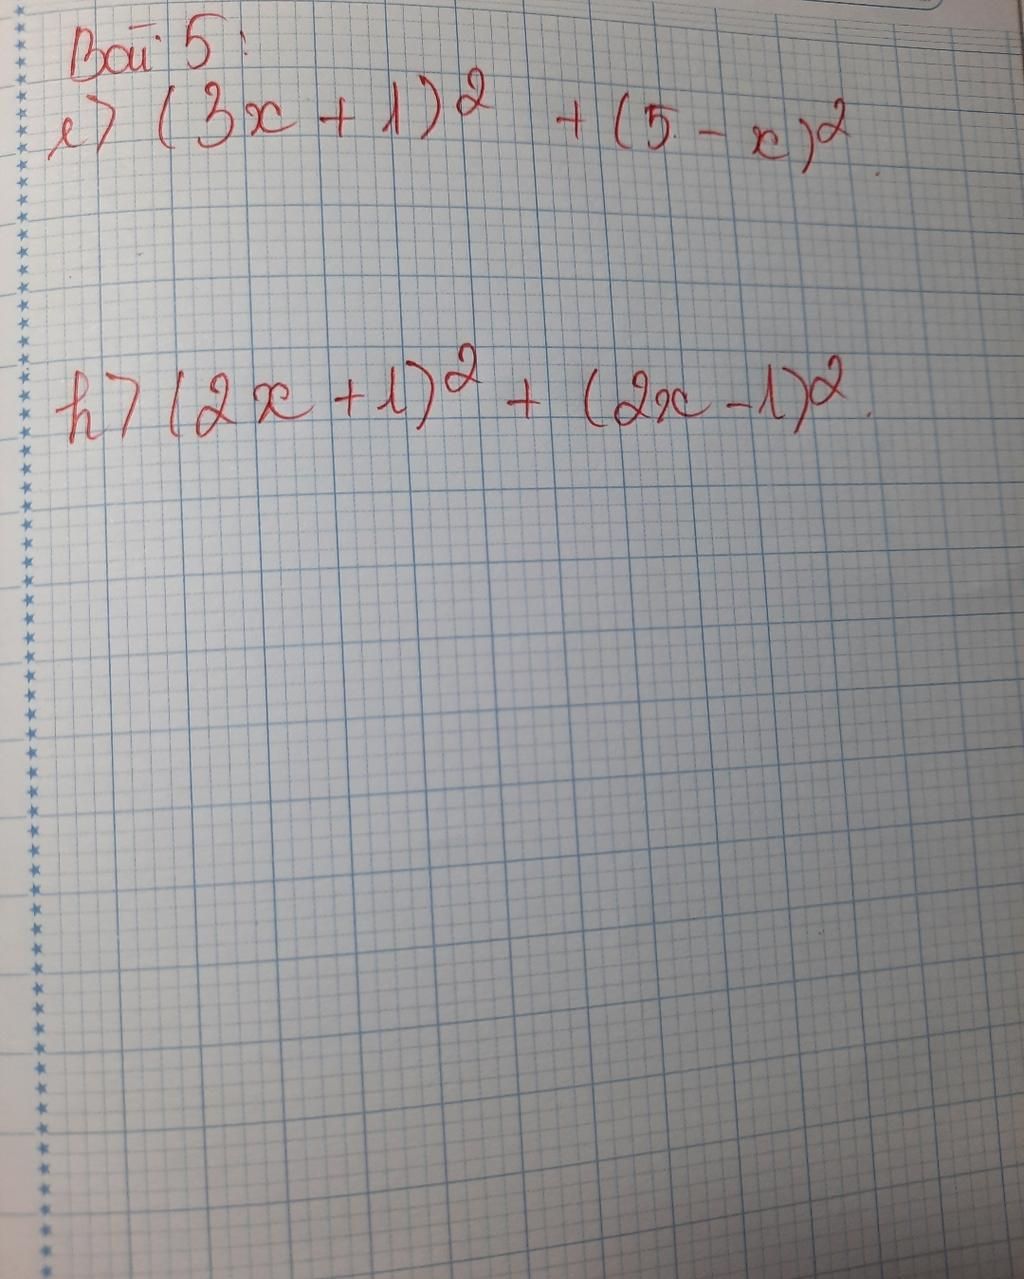 Bài 5:
e) (3x + 1)² + (5 - x)².
h) (2x + 1)² + (2x - 1)².